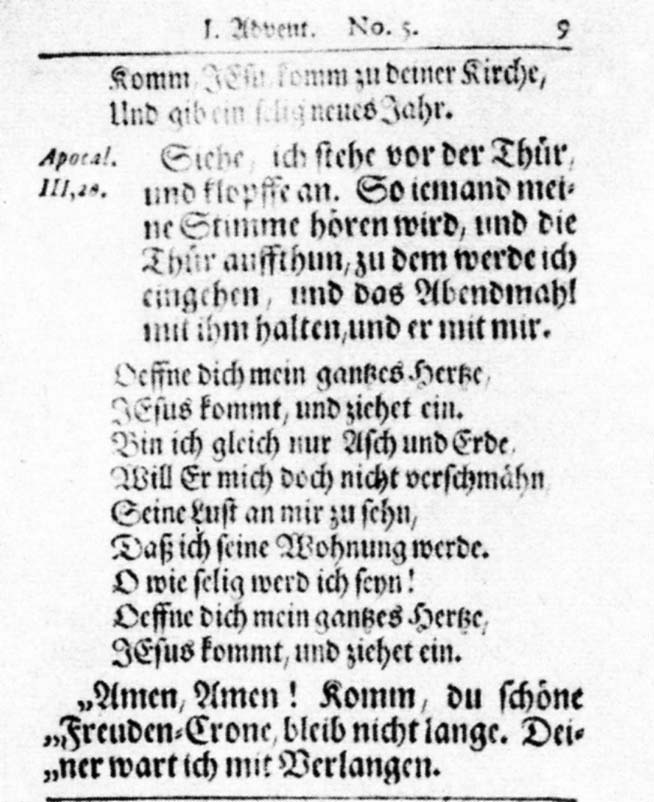 I. Advent. No. 5. 9
Komm, JEsu, komm zu deiner Kirche,
Und gib ein selig neues Jahr.
Apocal. Siehe, ich stehe vor der Thür,
III,20. und klopffe an. So iemand mei-
ne Stimme hören wird, und die
Thür auffthun, zu dem werde ich
eingehen, und das Abendmahl
mit ihm halten, und er mit mir.
Oeffne dich mein gantzes Hertze,
JEsus kommt, und ziehet ein.
Bin ich gleich nur Asch und Erde,
Will Er mich doch nicht verschmähn,
Seine Lust an mir zu sehn,
Daß ich seine Wohnung werde.
O wie selig werd ich seyn!
Oeffne dich mein gantzes Hertze,
JEsus kommt, und ziehet ein.
„Amen, Amen! Komm, du schöne
„Freuden-Crone, bleib nicht lange. Dei-
„ner wart ich mit Verlangen.